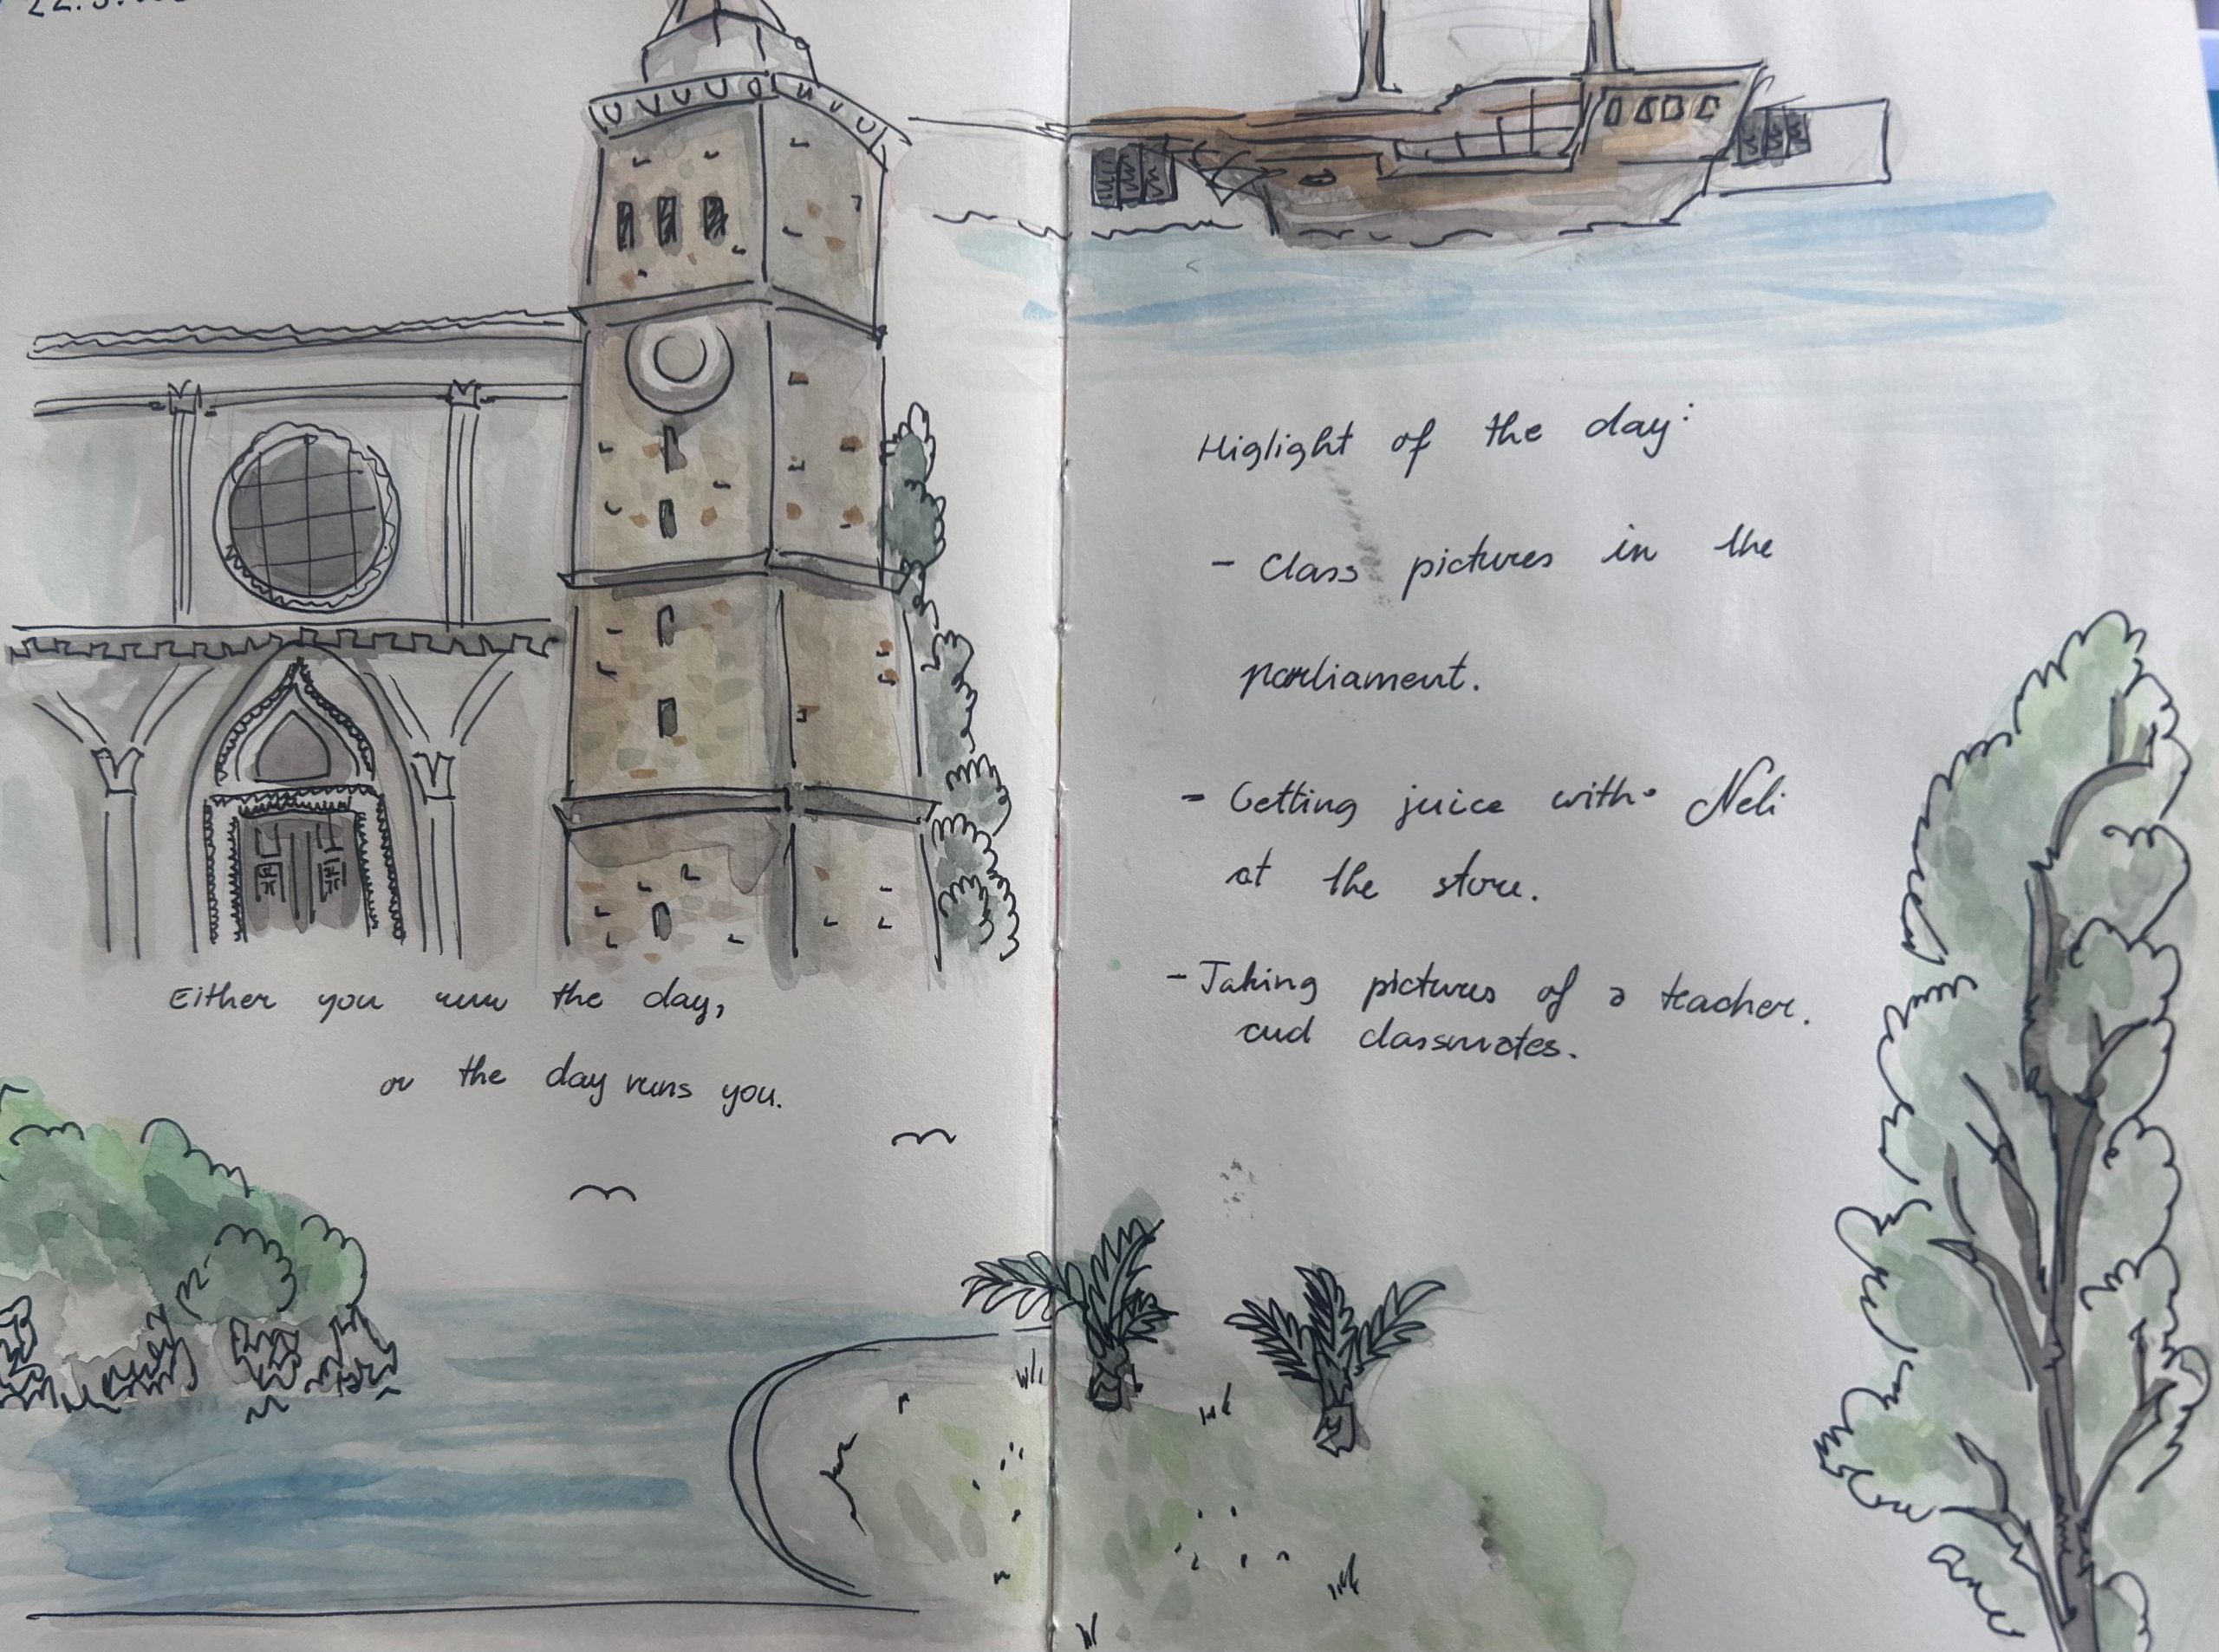 Either you run the day,
or the day runs you.
Higlight of the day:
- Class pictures in the
parliament.
- Getting juice with Neli
at the store.
- Taking pictures of a teacher.
and classmates.